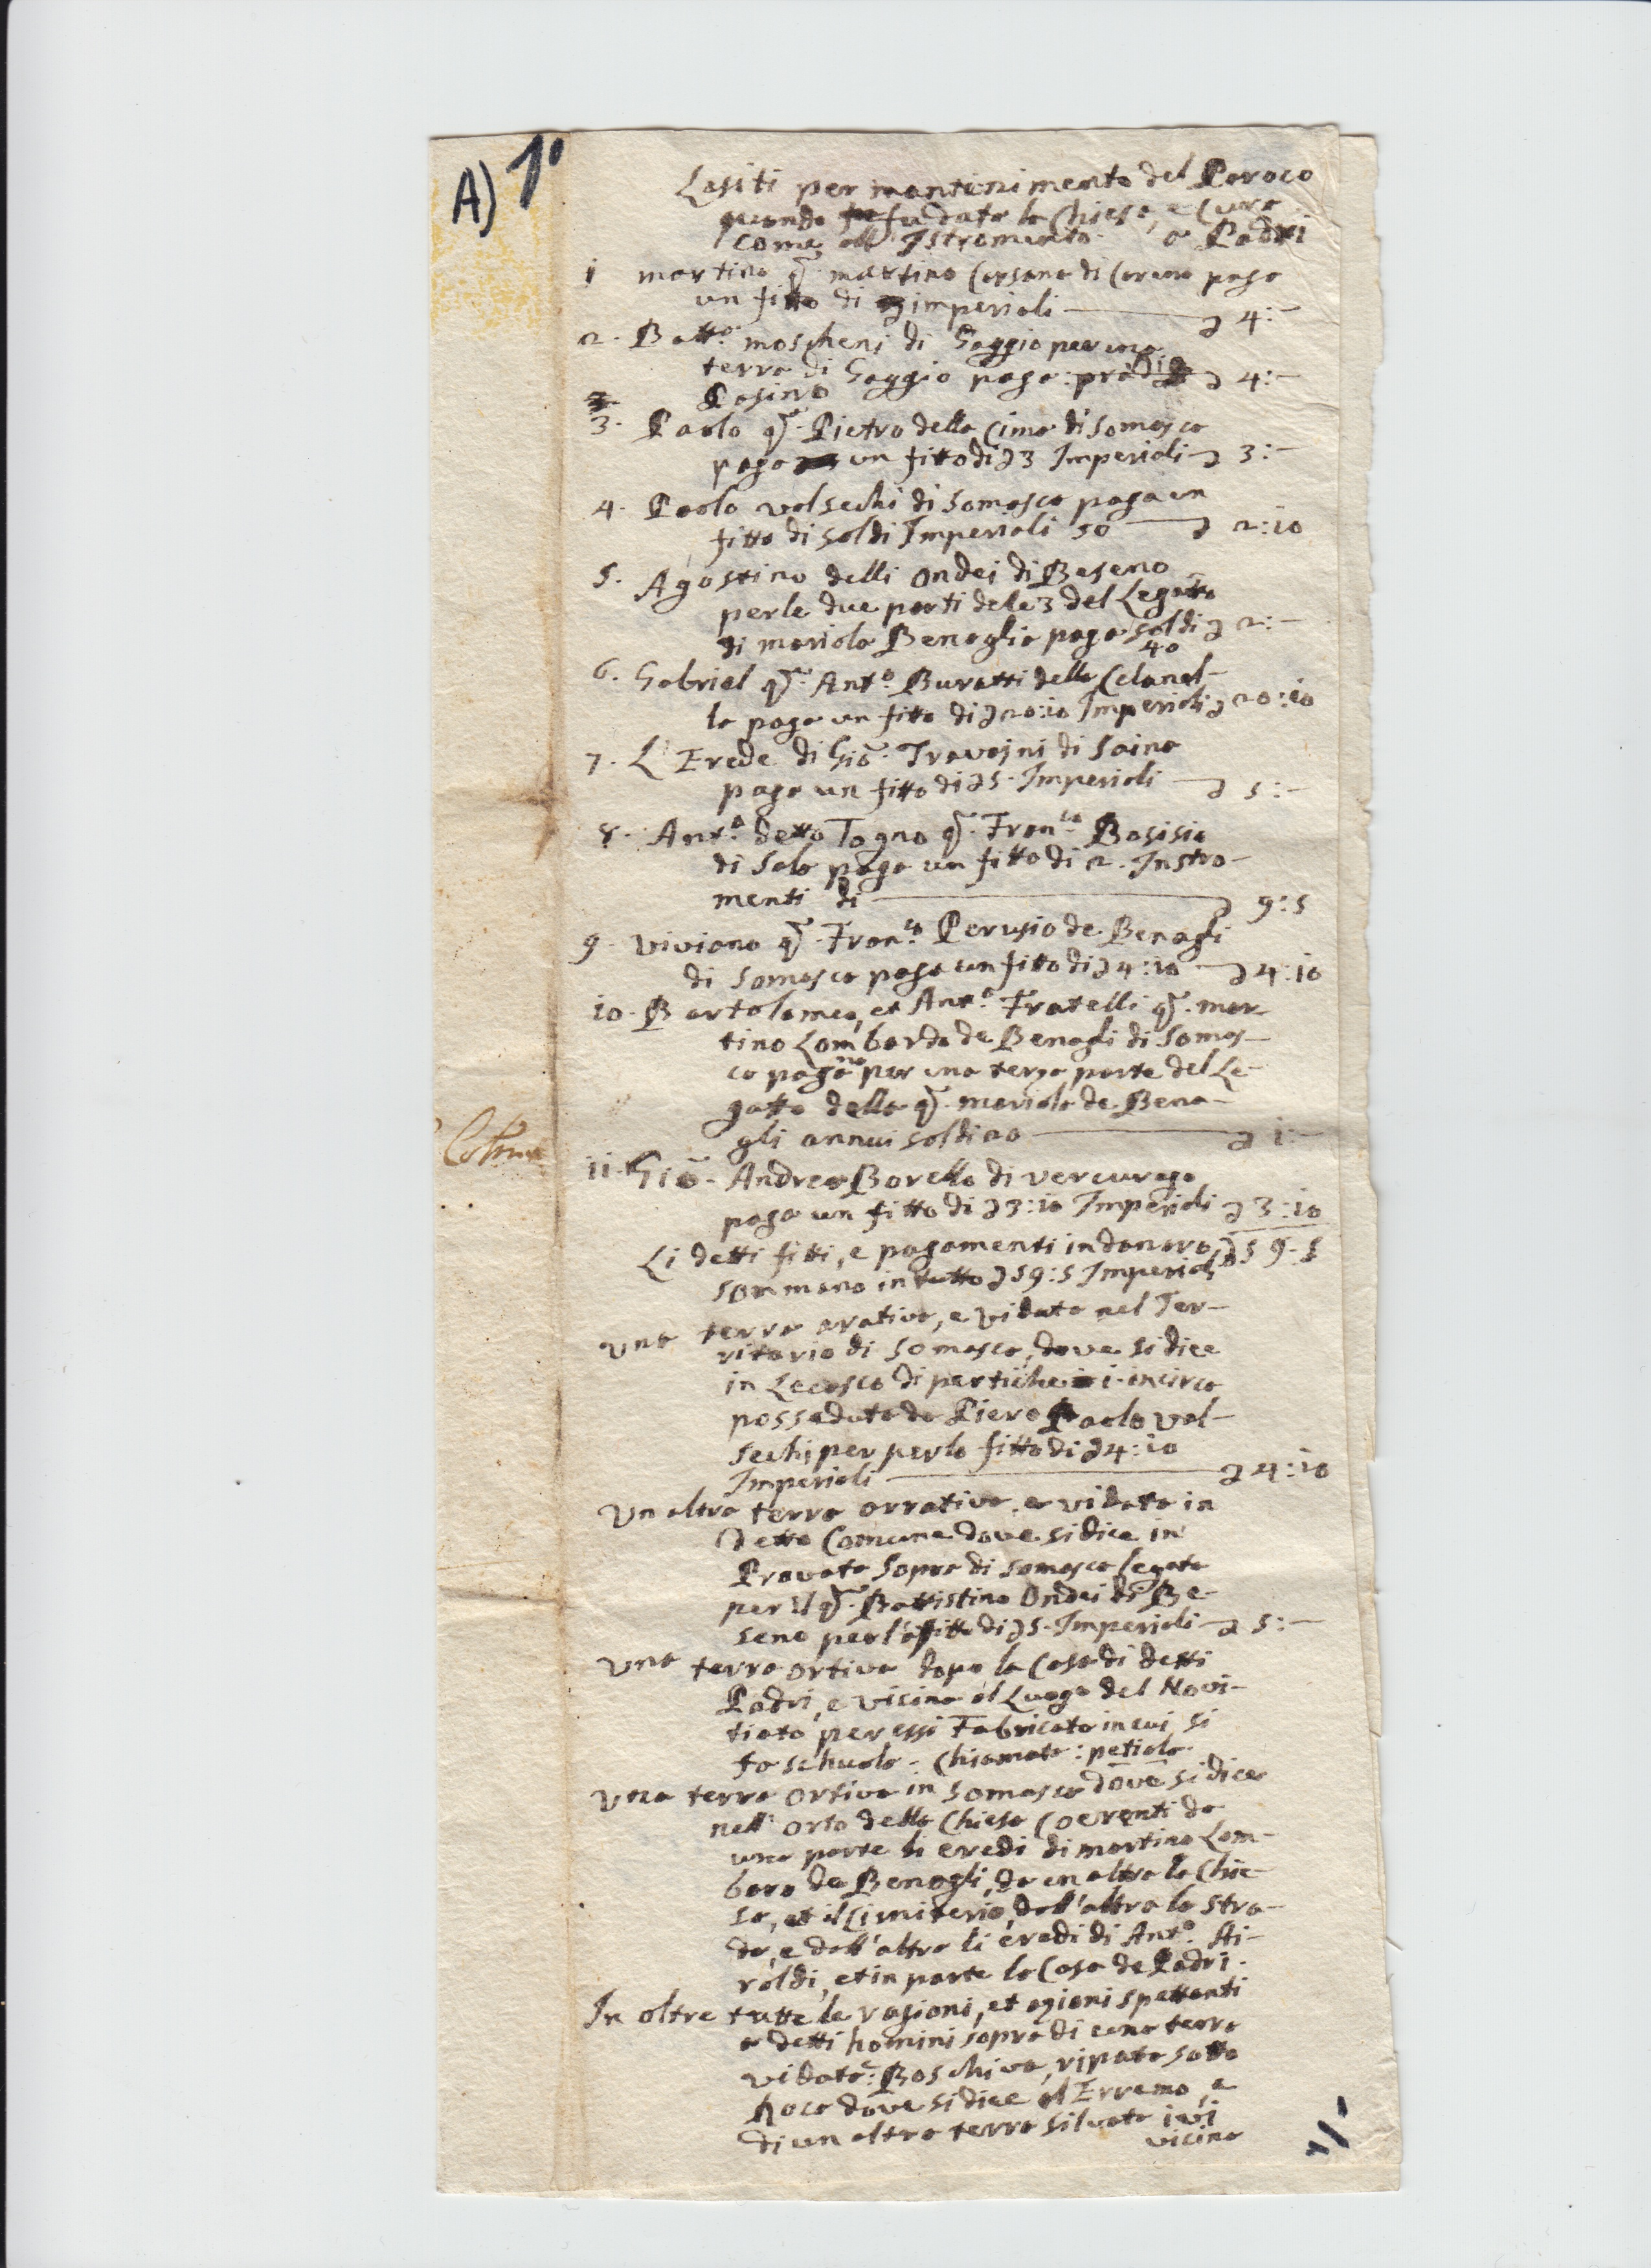 A) 1°
Lasiti per mantenimento del Paroco
quando fu fudata la Chiesa, e Cura
come all' Istromento. a Padri
1 martino q. martino Corsano di Corcno paga
un fitto di imperiali — 4:—
2. Batt.a moscheni di Gaggio per una
terra di Gaggio paga: pra di 4:—
Pasino
3. Paolo q. Pietro della Cima di Somasca
paga un fitto di 3 Imperiali 3:—
4. Paolo valsechi di Somasca paga un
fitto di soldi Imperiali 50 — 2:10
5. Agostino delli Ondei di Beseno
per le due parti dele 3 del Legato
di mariola Benaglia paga soldi 2:—
40
6. Gabriel q. Ant.o Buratti della Celanel-
la paga un fitto di 20:10 Imperiali 20:10
7. L'Erede di Giō. Travaini di Saina
paga un fitto di 5. Imperiali — 5:—
8. Ant.o detto Togno q. Fran.co Basisio
di Sala paga un fitto di 2. Instro-
menti di — 9:5
9. Viviano q. Fran.co Perusio de Benagli
di Somasca paga un fitto di 4:10 — 4:10
10. Bartolomeo, et Ant.o Fratelli q. mar-
tino Lombardo de Benagli di Somas-
ca pagano per una terza parte del Le-
gatto della q. mariola de Bena-
gli annui soldi 20 — 1:—
11. Giō. Andrea Borello di vercurago
paga un fitto di 3:10 Imperiali 3:10
Li detti fitti, e pagamenti in danaro, 59-5
sommano in tutto 59:5 Imperiali
Una terra arativa, e vidata nel Ter-
ritorio di Somasca, dove si dice
in Lecosco di pertiche 1. incirca
possaduta da Piero Paolo val-
sechi per perlo fitto di 4:10
Imperiali — 4:10
Un altra terra arrativa, e vidata in
detto Comune dove si dice in
Pravata sopra di Somasca legata
per il q. Battistino Ondei di Be-
seno per l'afitto di 5. Imperiali 5:—
Una terra ortiva dopo la Casa di detti
Padri, e vicina al Luogo del Novi-
tiato per essi Fabricato in cui si
fa schuola. Chiamata: petiola.
Una terra ortiva in Somasca dove si dice
nell' orto della Chiesa Coerenti da
una parte li eredi di martino Lom-
bardo de Benagli, da un altra la Chie-
sa, et il Cimiterio, dall'altra la stra-
da, e dall'altra li eredi di Ant.o Ai-
roldi, et in parte la Casa de Padri.
In oltre tutte le ragioni, et azioni spettanti
a detti homini sopra di una terra
vidata: Boschiva, ripata sotto
Roca dove si dice al Erremo, e
di un altra terra silvata ivi
vicina